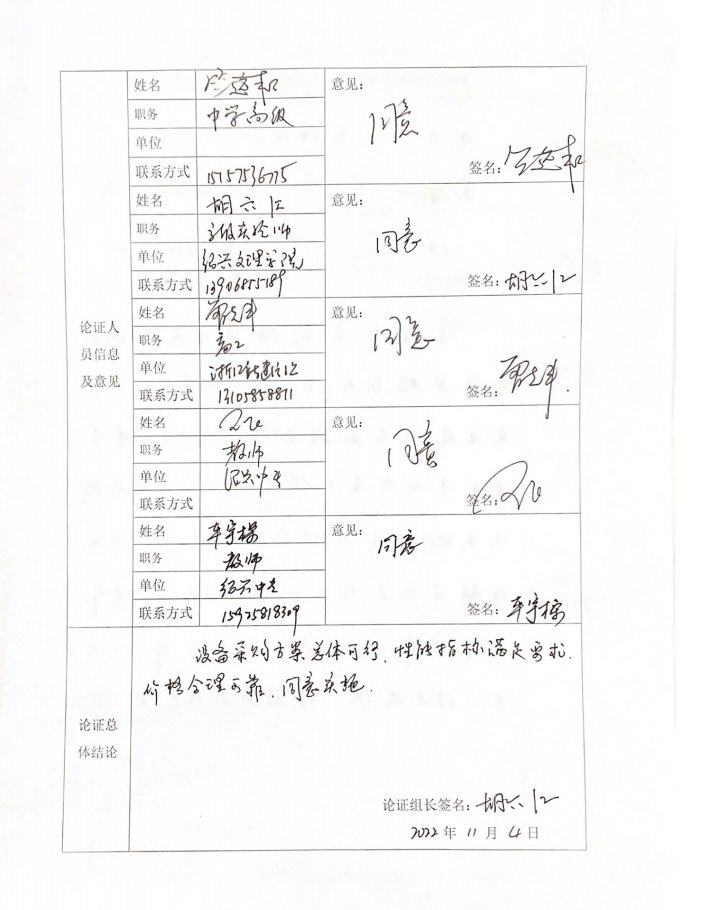 论证人
员信息
及意见
姓名
职务 中学高级
单位
联系方式 15157536775
意见:
同意
签名:
姓名 胡六江
职务 高级实验师
单位 绍兴文理学院
联系方式 13906855189
意见:
同意
签名: 胡六江
姓名
职务 高工
单位
联系方式 13105858811
意见:
同意
签名:
姓名
职务 教师
单位 绍兴中专
联系方式
意见:
同意
签名:
姓名 车宇操
职务 教师
单位 绍兴中专
联系方式 15925818309
意见:
同意
签名: 车宇操
论证总
体结论
设备采购方案总体可行,性能指标满足要求.
价格合理可靠.同意实施.
论证组长签名: 胡六江
2022 年 11 月 4 日